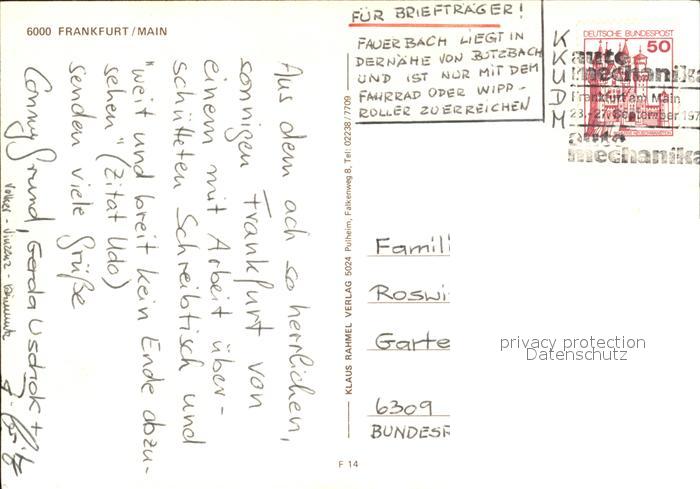 6000 FRANKFURT/MAIN
Aus dem ach so herrlichen,
sonnigen Frankfurt von
einem mit Arbeit über-
schütteten Schreibtisch und
"weit und breit kein Ende abzu-
sehen" (Zitat Udo)
senden viele Grüße
Conny Grund, Gerda Uschok +
KLAUS RAHMEL VERLAG 5024 Pulheim, Falkenweg 8, Tel: 02238/7709
F 14
FÜR BRIEFTRÄGER!
FAUERBACH LIEGT IN
DERNÄHE VON BUTZBACH
UND IST NUR MIT DEM
FAHRRAD ODER WIPP-
ROLLER ZU ERREICHEN
DEUTSCHE BUNDESPOST
50
auto
mechanika
Frankfurt am Main
23.-27. September 197
auto
mechanika
Famili
Roswi
Garte
6309
BUNDESR
privacy protection
Datenschutz